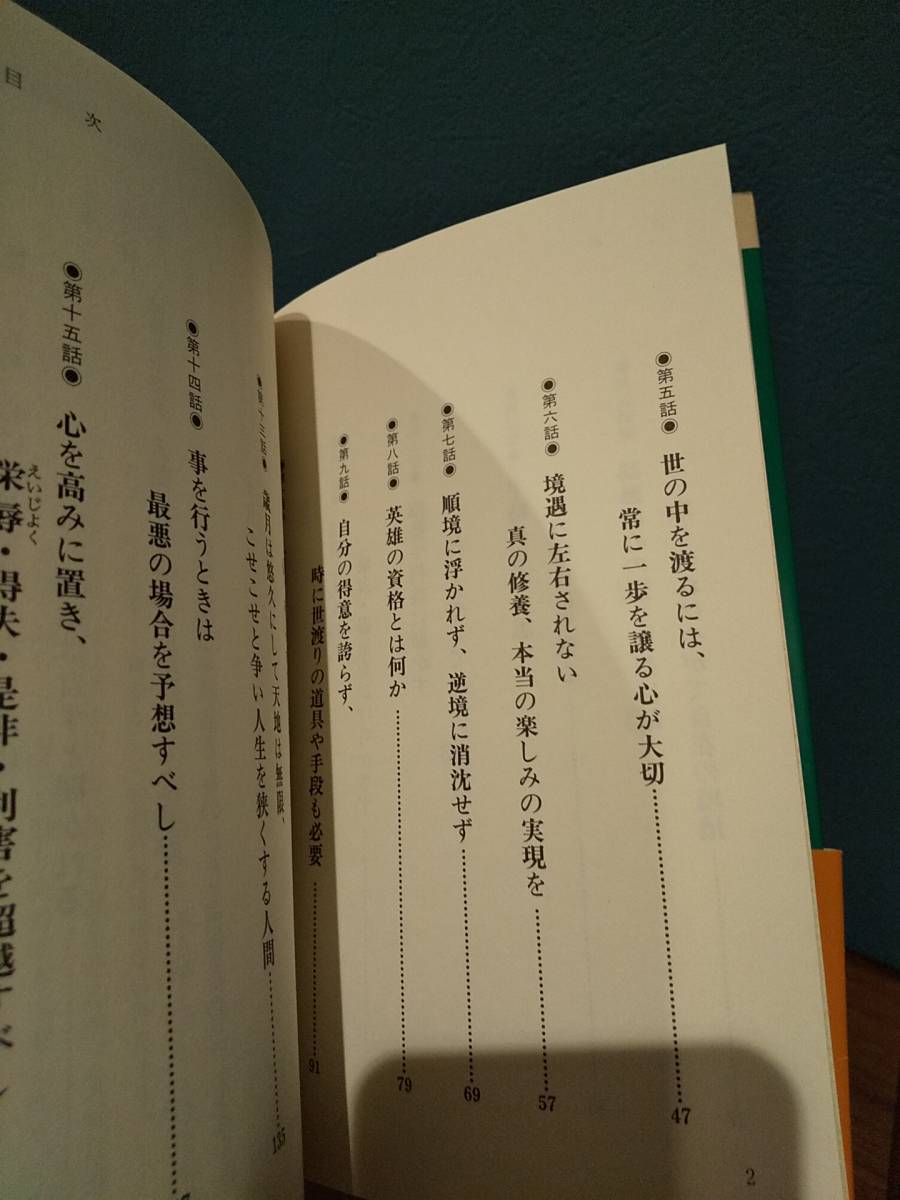 ◉第五話◉ 世の中を渡るには、
常に一歩を譲る心が大切……47
◉第六話◉ 境遇に左右されない
真の修養、本当の楽しみの実現を……57
◉第七話◉ 順境に浮かれず、逆境に消沈せず……69
◉第八話◉ 英雄の資格とは何か……79
◉第九話◉ 自分の得意を誇らず、
時に世渡りの道具や手段も必要……91
2
目次
◉第十三話◉ 歳月は悠久にして天地は無限、
こせこせと争い人生を狭くする人間……135
◉第十四話◉ 事を行うときは
最悪の場合を予想すべし……
◉第十五話◉ 心を高みに置き、
栄辱・得失・是非・利害を超越すべし
えいじよく